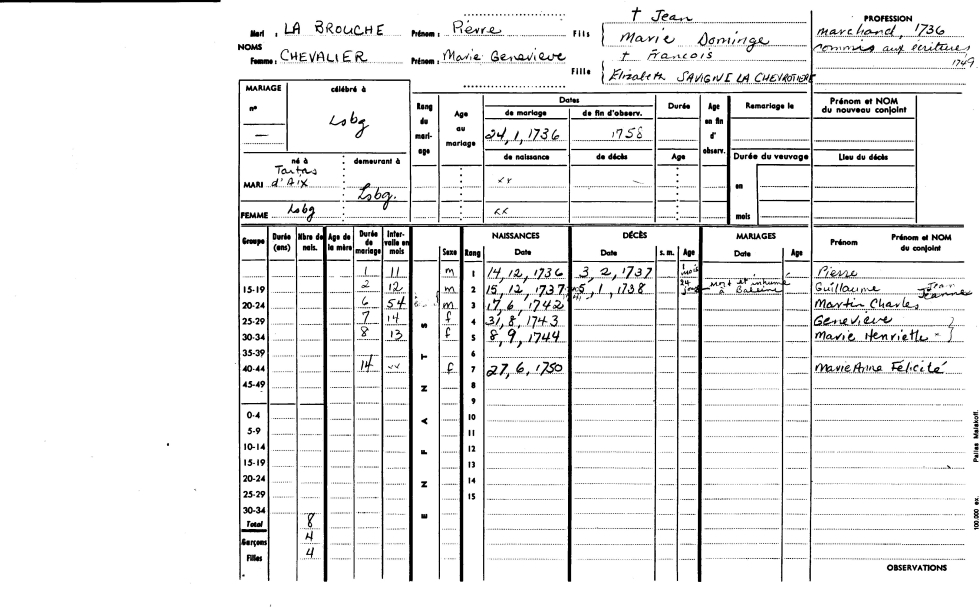 Mari : LA BROUCHE Prénom : Pierre Fils † Jean
Marie Dominge
NOMS
Femme : CHEVALIER Prénom : Marie Genevieve Fille † Francois
Elizabeth SAVIGNE LA CHEVROTIERE
PROFESSION
marchand, 1736
commis aux ecritures
1749
MARIAGE célébré à
n° — Lsbg
né à demeurant à
MARI Tartas d'Aix Lsbg.
FEMME Lsbg
Rang du mari-age Age au mariage
Dates Durée
de mariage de fin d'observ.
24, 1, 1736 1758
de naissance de décès Age
xx —
xx
Age en fin d'observ.
Remariage le
Durée du veuvage
en
mois
Prénom et NOM
du nouveau conjoint
Lieu du décès
Groupe Durée (ans) Nbre de nais. Age de la mère Durée de mariage Inter-valle en mois ENFANTS Sexe Rang NAISSANCES Date DÉCÈS Date s. m. Age MARIAGES Date Age Prénom Prénom et NOM du conjoint
1 11 m 1 14, 12, 1736 3, 2, 1737 Pierre
15-19 2 12 m 2 15, 12, 1737 5, 1, 1738 24 mort et inhumé à Baleine Guillaume Jean Jeanne
20-24 6 54 m 3 17, 6, 1742 Martin Charles
25-29 7 14 f 4 31, 8, 1743 Genevieve
30-34 8 13 f 5 8, 9, 1744 Marie Henriette
35-39 6
40-44 14 xx f 7 27, 6, 1750 Marie Anne Felicité
45-49 8
9
0-4 10
5-9 11
10-14 12
15-19 13
20-24 14
25-29 15
30-34
Total 8
Garçons 4
Filles 4
OBSERVATIONS
100.000 ex. Pallas Malakoff.